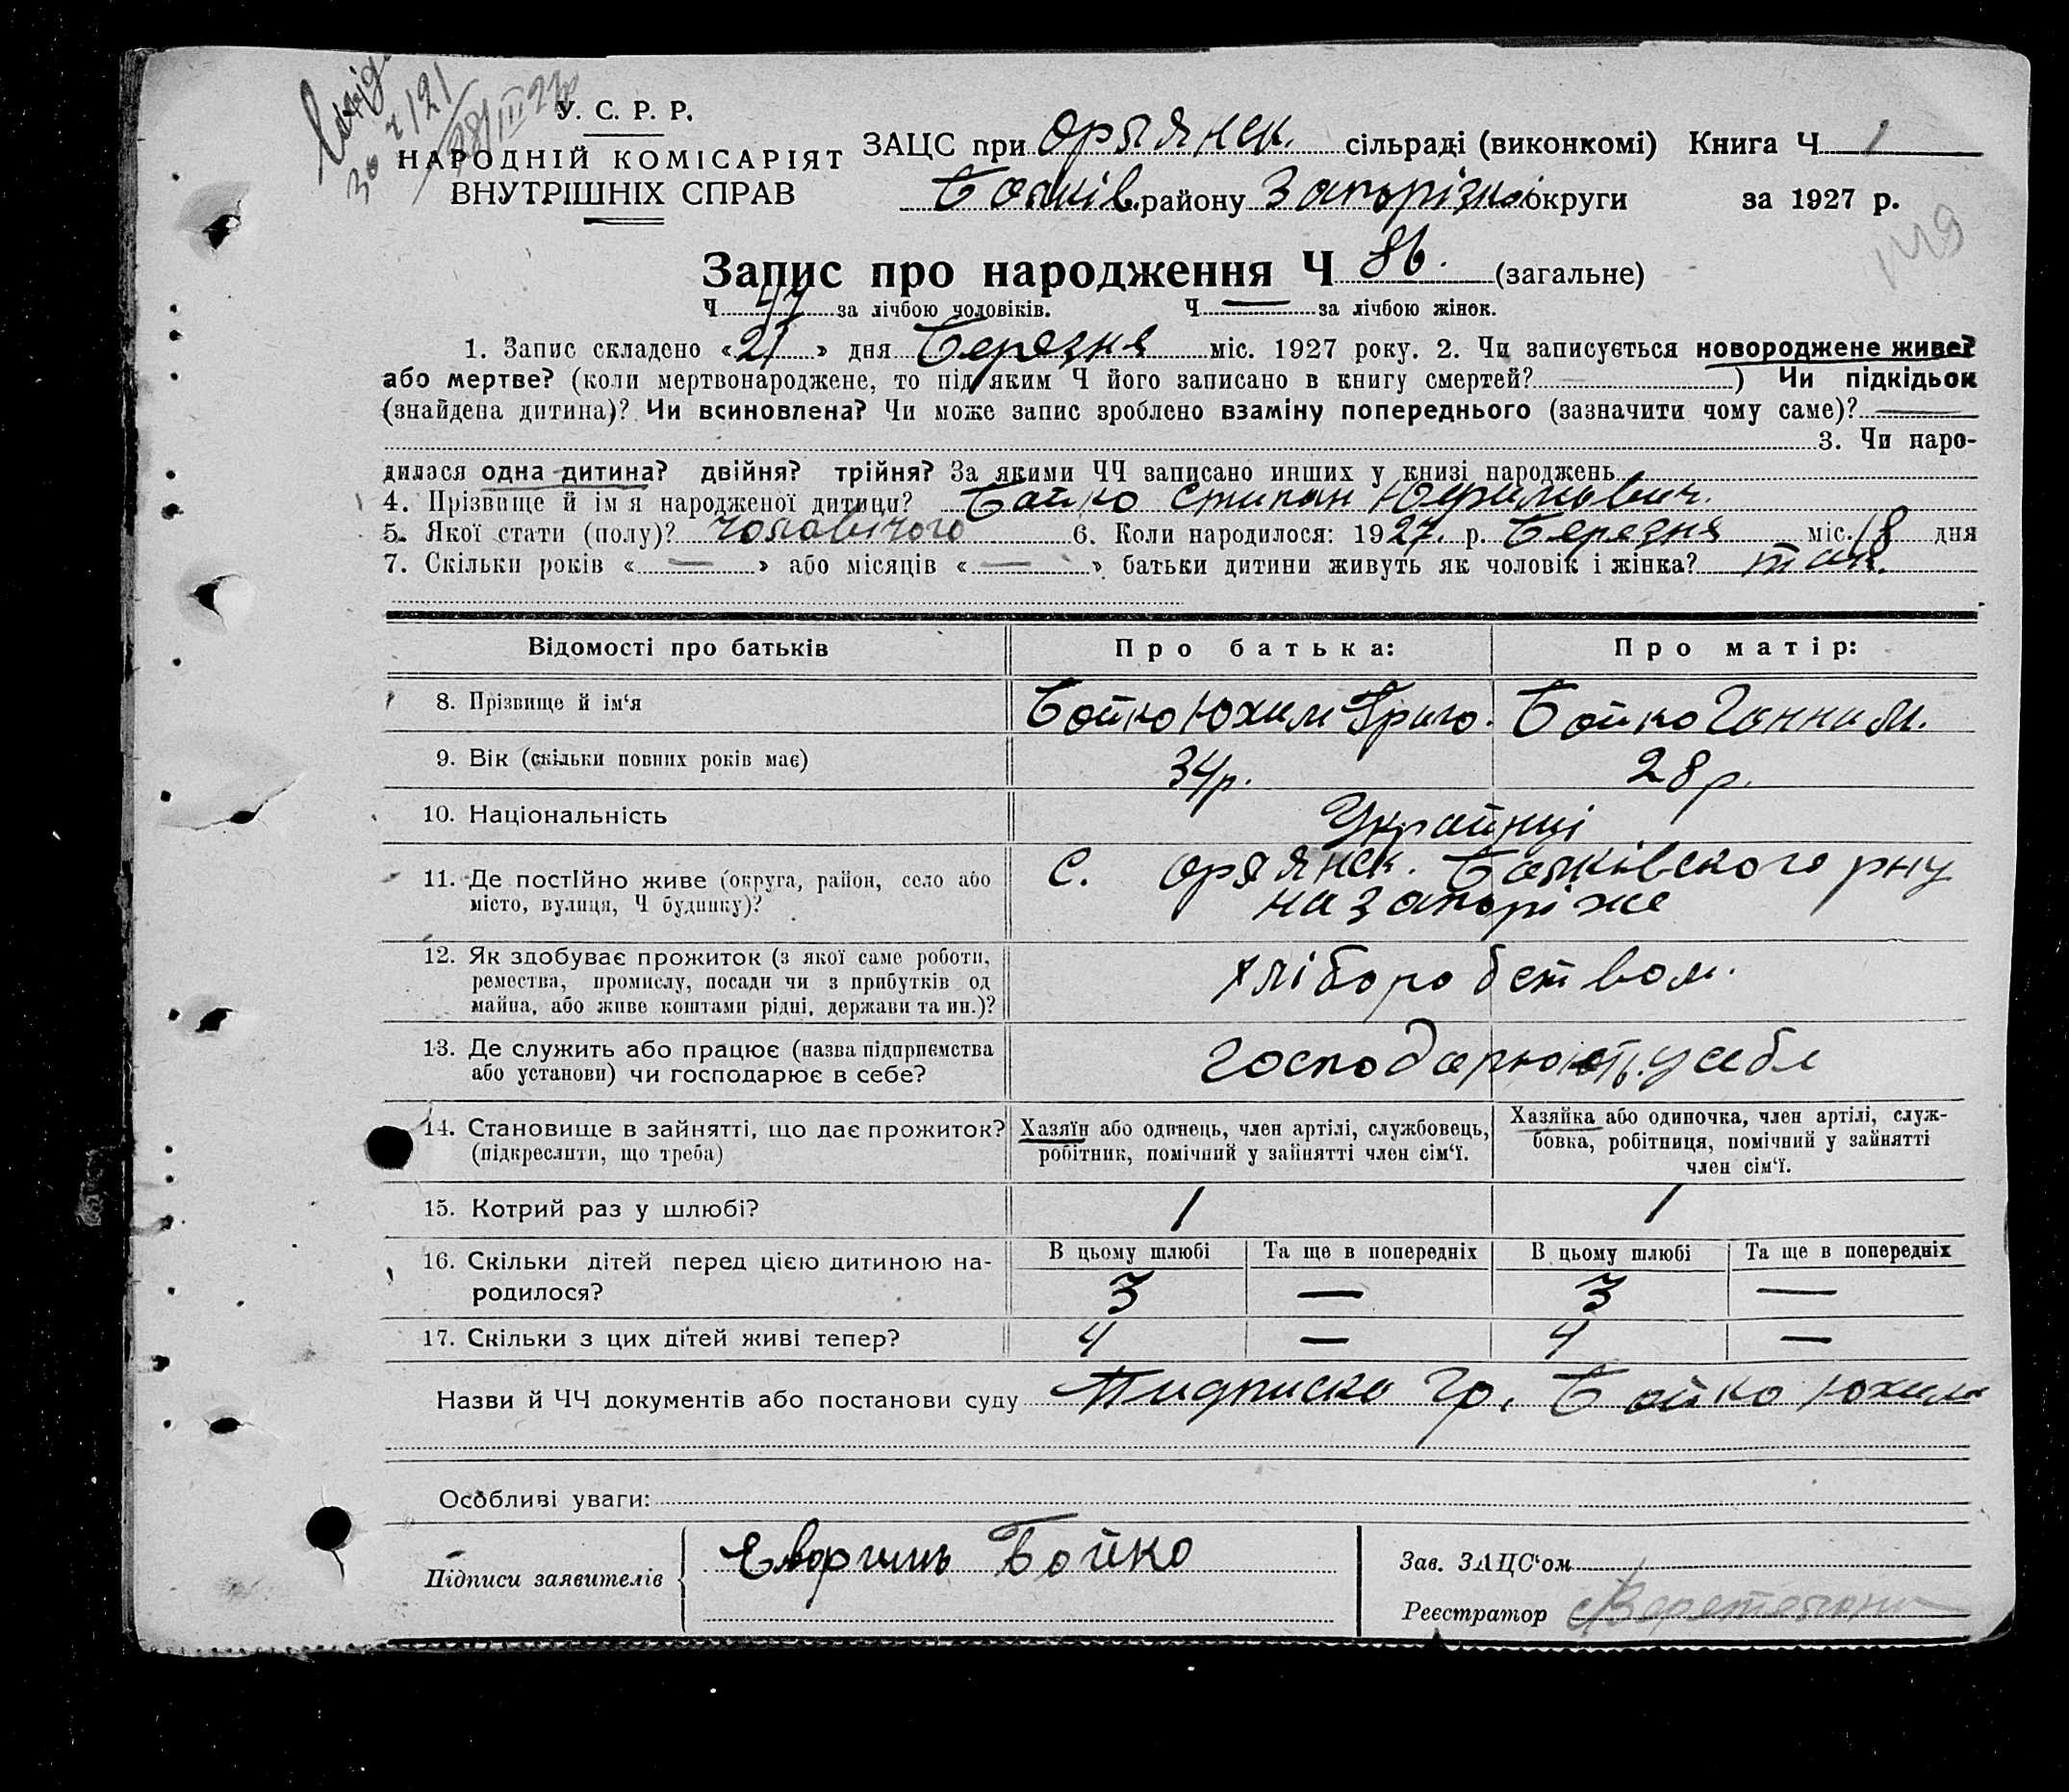 28/III 27р
У. С. Р. Р.
НАРОДНІЙ КОМІСАРІЯТ
ВНУТРІШНІХ СПРАВ
ЗАЦС при Оръянск. сільраді (виконкомі) Книга Ч 1
району Запорізької округи за 1927 р.
149
Запис про народження Ч 86. (загальне)
Ч 47 за лічбою чоловіків. Ч — за лічбою жінок.
1. Запис складено «21» дня Березня міс. 1927 року. 2. Чи записується новороджене живе?
або мертве? (коли мертвонароджене, то під яким Ч його записано в книгу смертей? —) Чи підкідьок
(знайдена дитина)? Чи всиновлена? Чи може запис зроблено взаміну попереднього (зазначити чому саме)? —
3. Чи наро-
дилася одна дитина? двійня? трійня? За якими ЧЧ записано инших у книзі народжень
4. Прізвище й ім'я народженої дитини? Бойко Степан Юхимович.
5. Якої стати (полу)? чоловічого 6. Коли народилося: 1927. р. Березня міс. 18 дня
7. Скільки років « — » або місяців « — » батьки дитини живуть як чоловік і жінка? так.
Відомості про батьків Про батька: Про матір:
8. Прізвище й ім'я Бойко Юхим Григо. Бойко Ганна М.
9. Вік (скільки повних років має) 34р. 28р.
10. Національність Українці
11. Де постійно живе (округа, район, село або С. Оръянск. рну
місто, вулиця, Ч будинку)? на Запоріже
12. Як здобуває прожиток (з якої саме роботи,
ремества, промислу, посади чи з прибутків од хліборобством.
майна, або живе коштами рідні, держави та ин.)?
13. Де служить або працює (назва підприємства господарюють у себе
або установи) чи господарює в себе?
14. Становище в зайнятті, що дає прожиток? Хазяїн або одинець, член артілі, службовець, Хазяйка або одиночка, член артілі, служ-
(підкреслити, що треба) робітник, помічний у зайнятті член сім'ї. бовка, робітниця, помічний у зайнятті
член сім'ї.
15. Котрий раз у шлюбі? 1 1
16. Скільки дітей перед цією дитиною на- В цьому шлюбі Та ще в попередніх В цьому шлюбі Та ще в попередніх
родилося? 3 — 3 —
17. Скільки з цих дітей живі тепер? 4 — 4 —
Назви й ЧЧ документів або постанови суду Пидписка гр. Бойко Юхим
Особливі уваги:
Підписи заявителів Бойко
Зав. ЗАЦС'ом
Реєстратор